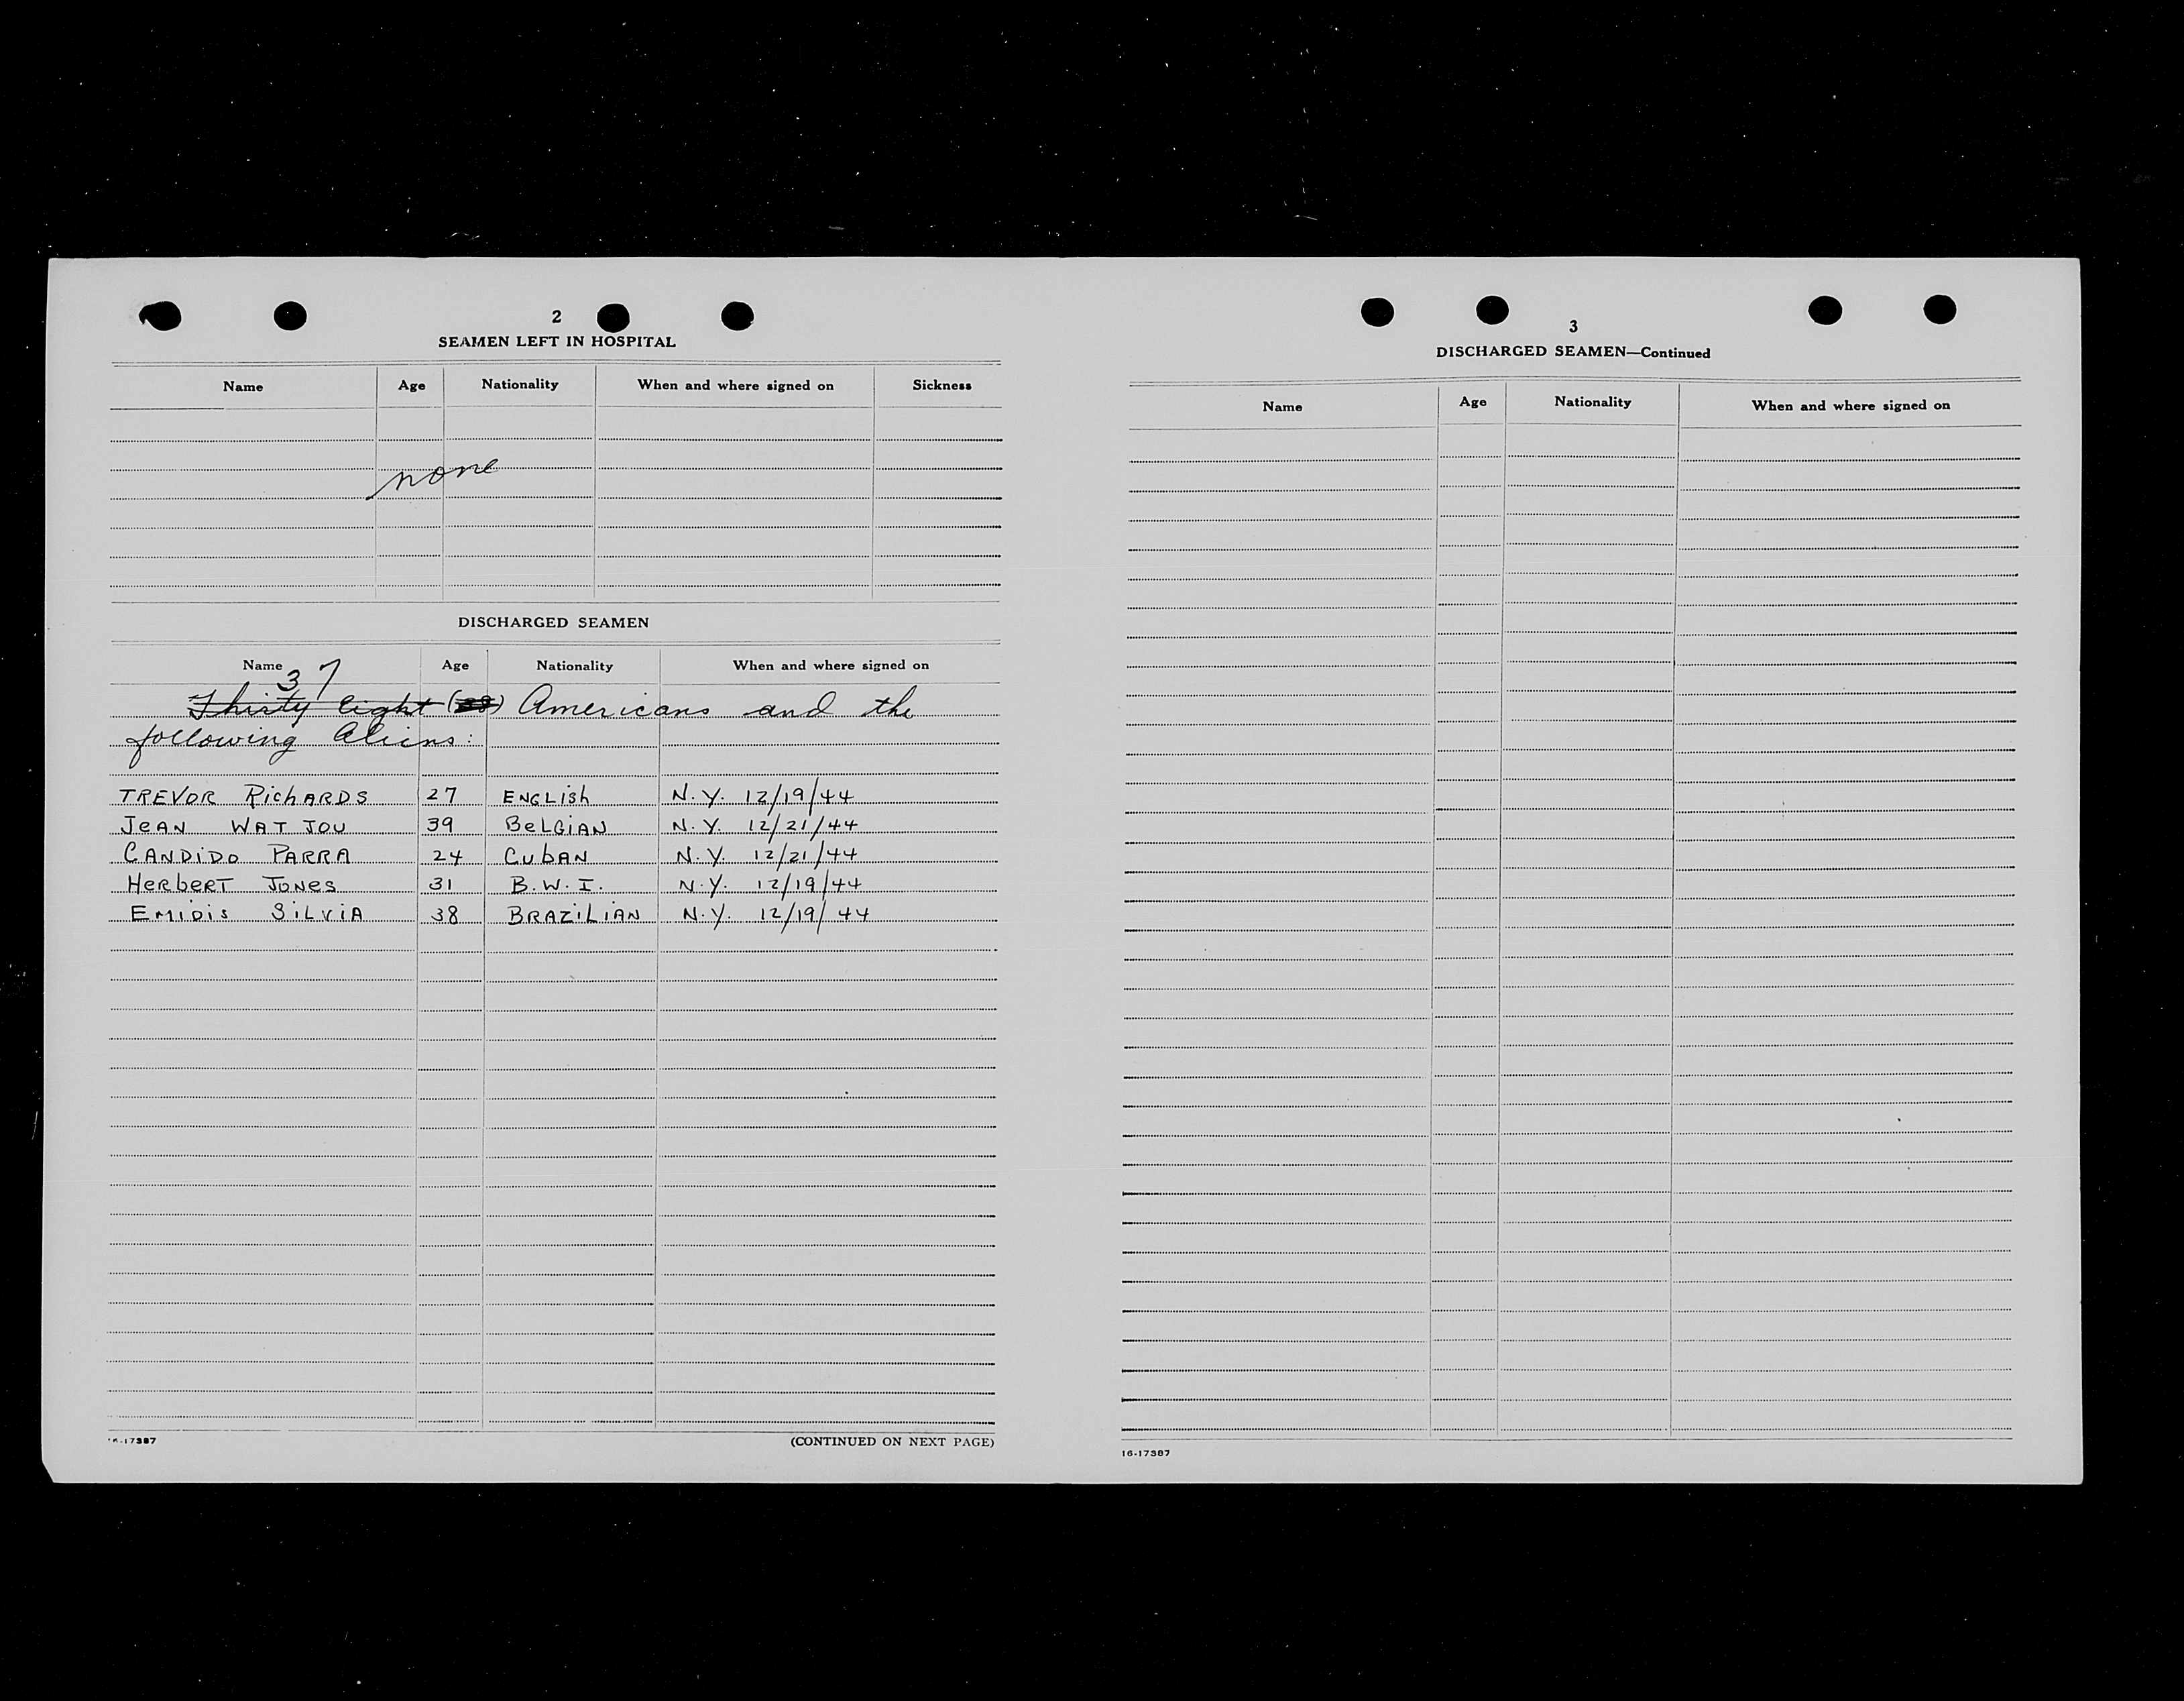 2
SEAMEN LEFT IN HOSPITAL
Name Age Nationality When and where signed on Sickness
none
DISCHARGED SEAMEN
Name Age Nationality When and where signed on
37
Thirty Eight (38) Americans and the
following Aliens:
TREVOR RichARDS 27 ENGLish N.Y. 12/19/44
JeAN WATJOU 39 BeLGiAN N.Y. 12/21/44
CANDiDO PARRA 24 CubAN N.Y. 12/21/44
HerbeRT JONes 31 B.W.I. N.Y. 12/19/44
EMiDis SiLViA 38 BRAZiLiAN N.Y. 12/19/44
16-17387 (CONTINUED ON NEXT PAGE)
3
DISCHARGED SEAMEN—Continued
Name Age Nationality When and where signed on
16-17387